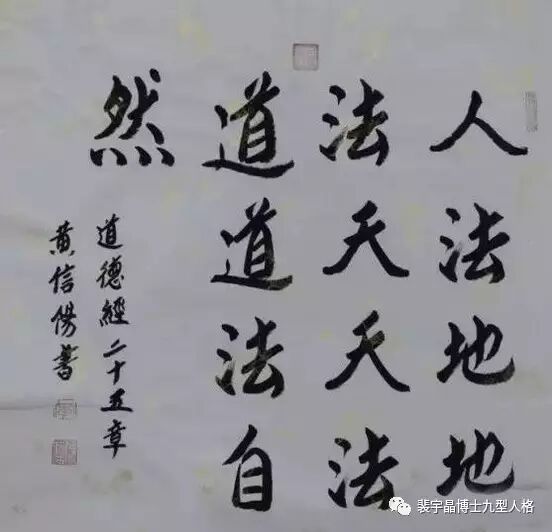 人法地地
法天天法
道道法自
然
道德經二十五章
黄信陽書
裴宇晶博士九型人格